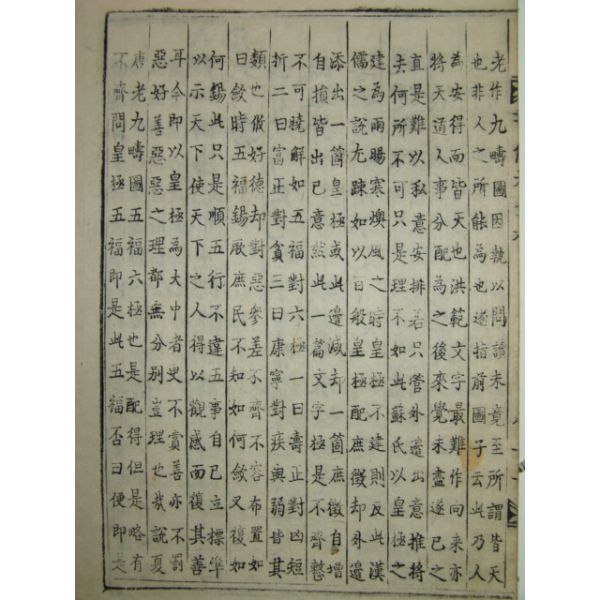 老作九疇圖因執以問讀未竟至所謂皆天
也非人之所能為也遂指前圖子云此乃人
為安得而皆天也洪範文字最難作向来亦
將天道人事分配為之後來覺未盡遂已之
直是難以私意安排若只管外邊出意推將
去何所不可只是理不如此蘇氏以皇極之
建為雨暘寒燠風之時皇極不建則反此漢
儒之說尤踈如以百般皇極配庶徵却外邊
添出一箇皇極或此邊減却一箇庶徵自增
自損皆出己意然此一篇文字極是不齊整
不可曉解如五福對六極一曰壽正對凶短
折二曰富正對貧三曰康寧對疾與弱皆其
類也攸好德却對惡參差不齊不容布置如
曰斂時五福錫厥庶民不知如何斂又復如
何錫此只是順五行不違五事自己立標準
以示天下使天下之人得以觀感而復其善
耳今即以皇極為大中者更不賞善亦不罰
惡好善惡惡之理都無分別豈理也哉說夏
唐老九疇圖五福六極也是配得但是略有
不齊問皇極五福即是此五福否曰便即是